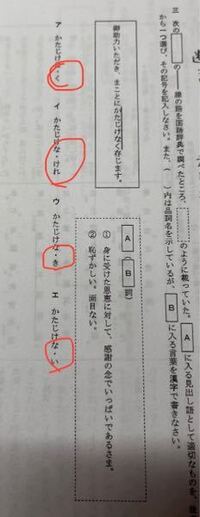 三 次の　の――線の語を国語辞典で調べたところ、　のように載っていた。 A に入る見出し語として適切なものを、後
から一つ選び、その記号を記入しなさい。また、( )内は品詞名を示しているが、 B に入る言葉を漢字で書きなさい。
御助力いただき、まことにかたじけなく存じます。
A ( B 詞)
① 身に受けた恩恵に対して、感謝の念でいっぱいであるさま。
② 恥ずかしい。面目ない。
ア かたじけな・く
イ かたじけな・けれ
ウ かたじけな・き
エ かたじけな・い